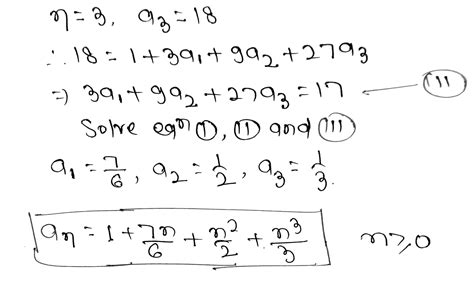 n=3, a₃=18
∴ 18 = 1+3a₁+9a₂+27a₃
⇒ 3a₁+9a₂+27a₃=17 ← (111)
Solve eqn (1), (11) and (111)
a₁ = 7/6, a₂ = 1/2, a₃ = 1/3.
aₙ = 1 + 7n/6 + n²/2 + n³/3 n≥0